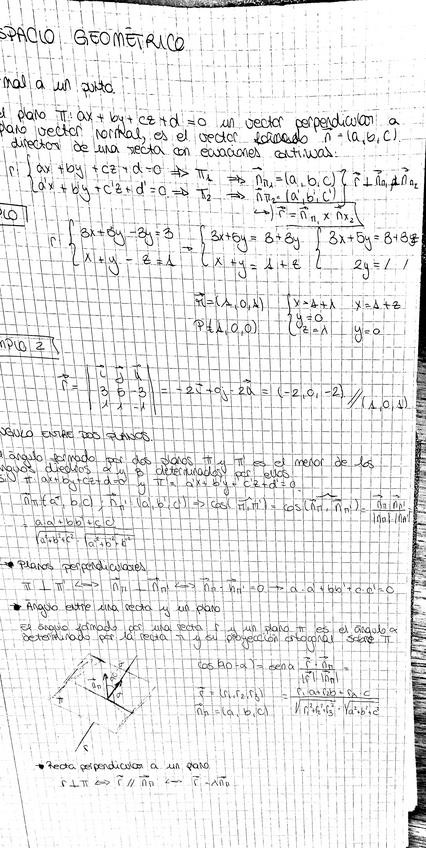 ESPACIO GEOMÉTRICO
mal a un punto.
el plano π: ax + by + cz + d = 0 un vector perpendicular a
plano vector normal, es el vector formado n⃗ = (a, b, c)
director de una recta con ecuaciones continuas:
r: { ax + by + cz + d = 0 ⇒ π₁ ⇒ n⃗π₁ = (a, b, c) } r⃗ ⊥ n⃗π₁ n⃗π₂
a'x + b'y + c'z + d' = 0 ⇒ π₂ ⇒ n⃗π₂ = (a', b', c')
↪ r⃗ = n⃗π₁ × n⃗π₂
PLO
r: { 3x + 5y - 3y = 3 ⇒ { 3x + 5y = 3 + 3y { 3x + 5y = 3 + 3z
x + y - z = 1 { x + y = 1 + z { 2y = / /
r⃗ = (1, 0, 1) { x = 1 + λ x = 1 + z
P (1, 0, 0) y = 0
z = λ y = 0
MPLO 2
r⃗ = | i⃗ j⃗ k⃗ |
| 3 5 -3 | = -2i⃗ + 0j - 2k⃗ = (-2, 0, -2) // (1, 0, 1)
| 1 1 -1 |
ÁNGULO ENTRE DOS PLANOS.
El ángulo formado por dos planos π y π' es el menor de los
ángulos diedros α y β determinados por ellos.
Si π: ax + by + cz + d = 0 y π' = a'x + b'y + c'z + d' = 0
n⃗π (a, b, c), n⃗π' (a', b', c') ⇒ cos(π, π') = cos(n⃗π, n⃗π') = n⃗π · n⃗π' / |n⃗π| · |n⃗π'|
= a·a' + bb' + c·c' / √a² + b² + c² · √a'² + b'² + c'²
• Planos perpendiculares
π ⊥ π' ⟺ n⃗π ⊥ n⃗π' ⟺ n⃗π · n⃗π' = 0 → a·a' + bb' + c·c' = 0
• Ángulo entre una recta y un plano
El ángulo formado por una recta r y un plano π es el ángulo α
determinado por la recta r y su proyección ortogonal sobre π.
cos(90 - α) = sen α = r⃗ · n⃗π / |r⃗| · |n⃗π| =
r⃗ = (r₁, r₂, r₃) = r₁·a + r₂·b + r₃·c / √r₁² + r₂² + r₃² · √a² + b² + c²
n⃗π = (a, b, c)
π
n⃗π
r⃗
α
r
• Recta perpendicular a un plano
r ⊥ π ⟺ r⃗ // n⃗π ⟺ r⃗ = λn⃗π